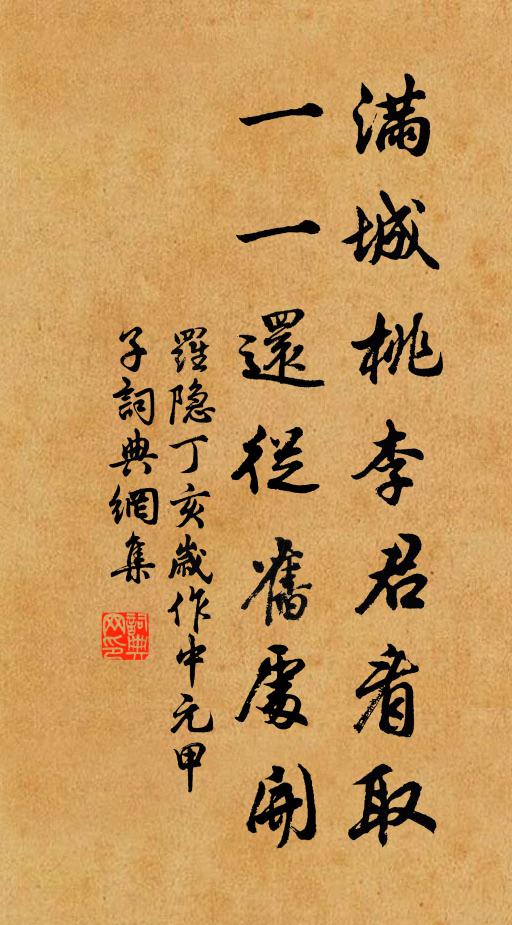 滿城桃李君看取
一一還從舊處開
羅隐丁亥嵗作中元甲
子詞典網集
詞典
网印